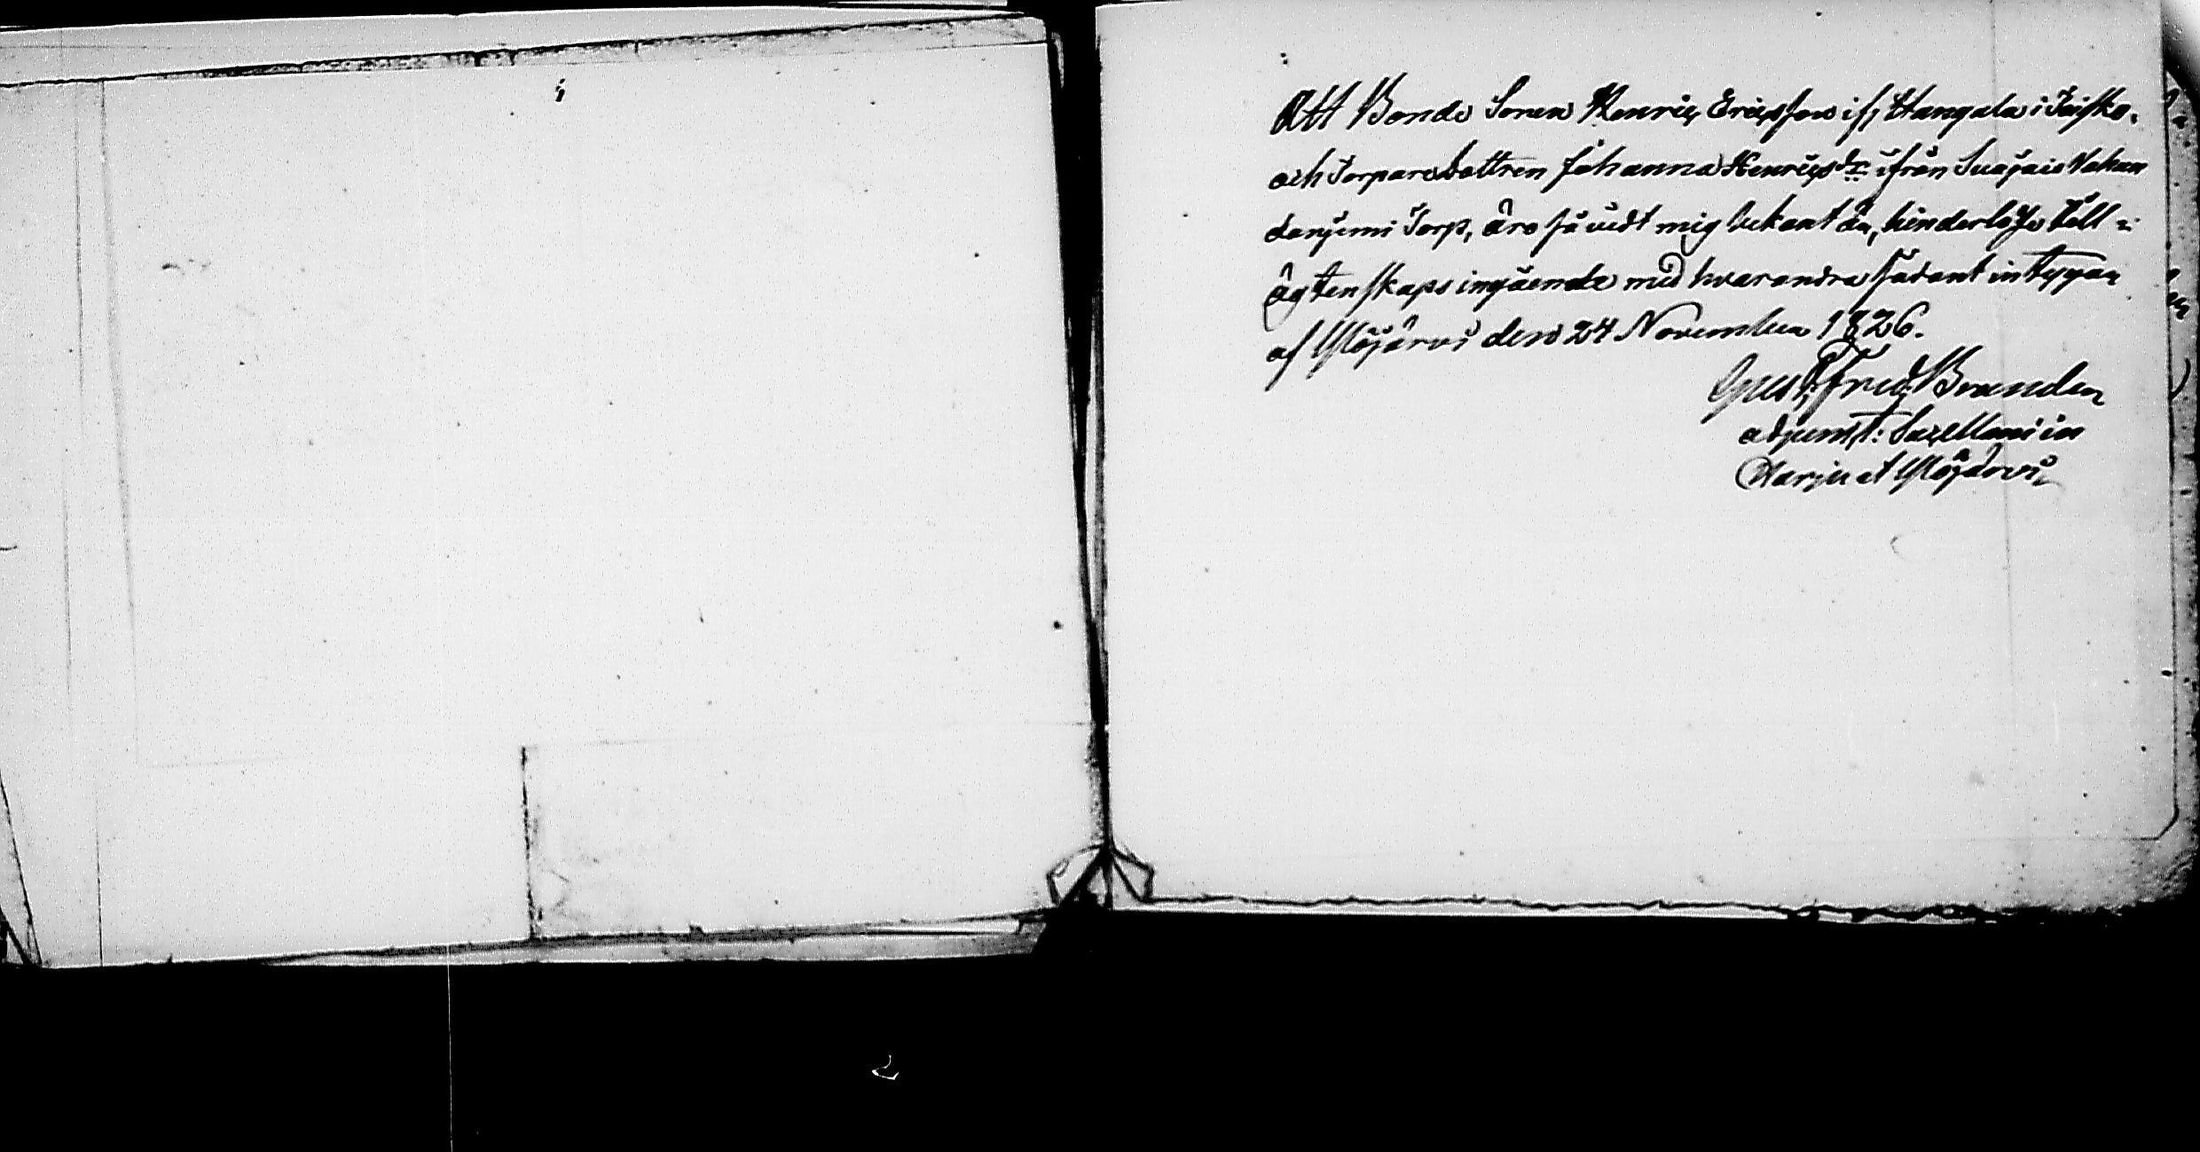 Att Bonde Sonen Henric Ericsson ifr Hangala i Teisko.
och Torparedottren Johanna Henricsdr ifrån
Torp, äro så vidt mig bekant är, hinderlöse till
ägtenskaps ingående med hvarandra sådant intygar
af Ylöjärvi den 24 November 1826.
Gust. Fred. Brander
adjunct: Sacellani in
Harju et Ylöjärvi